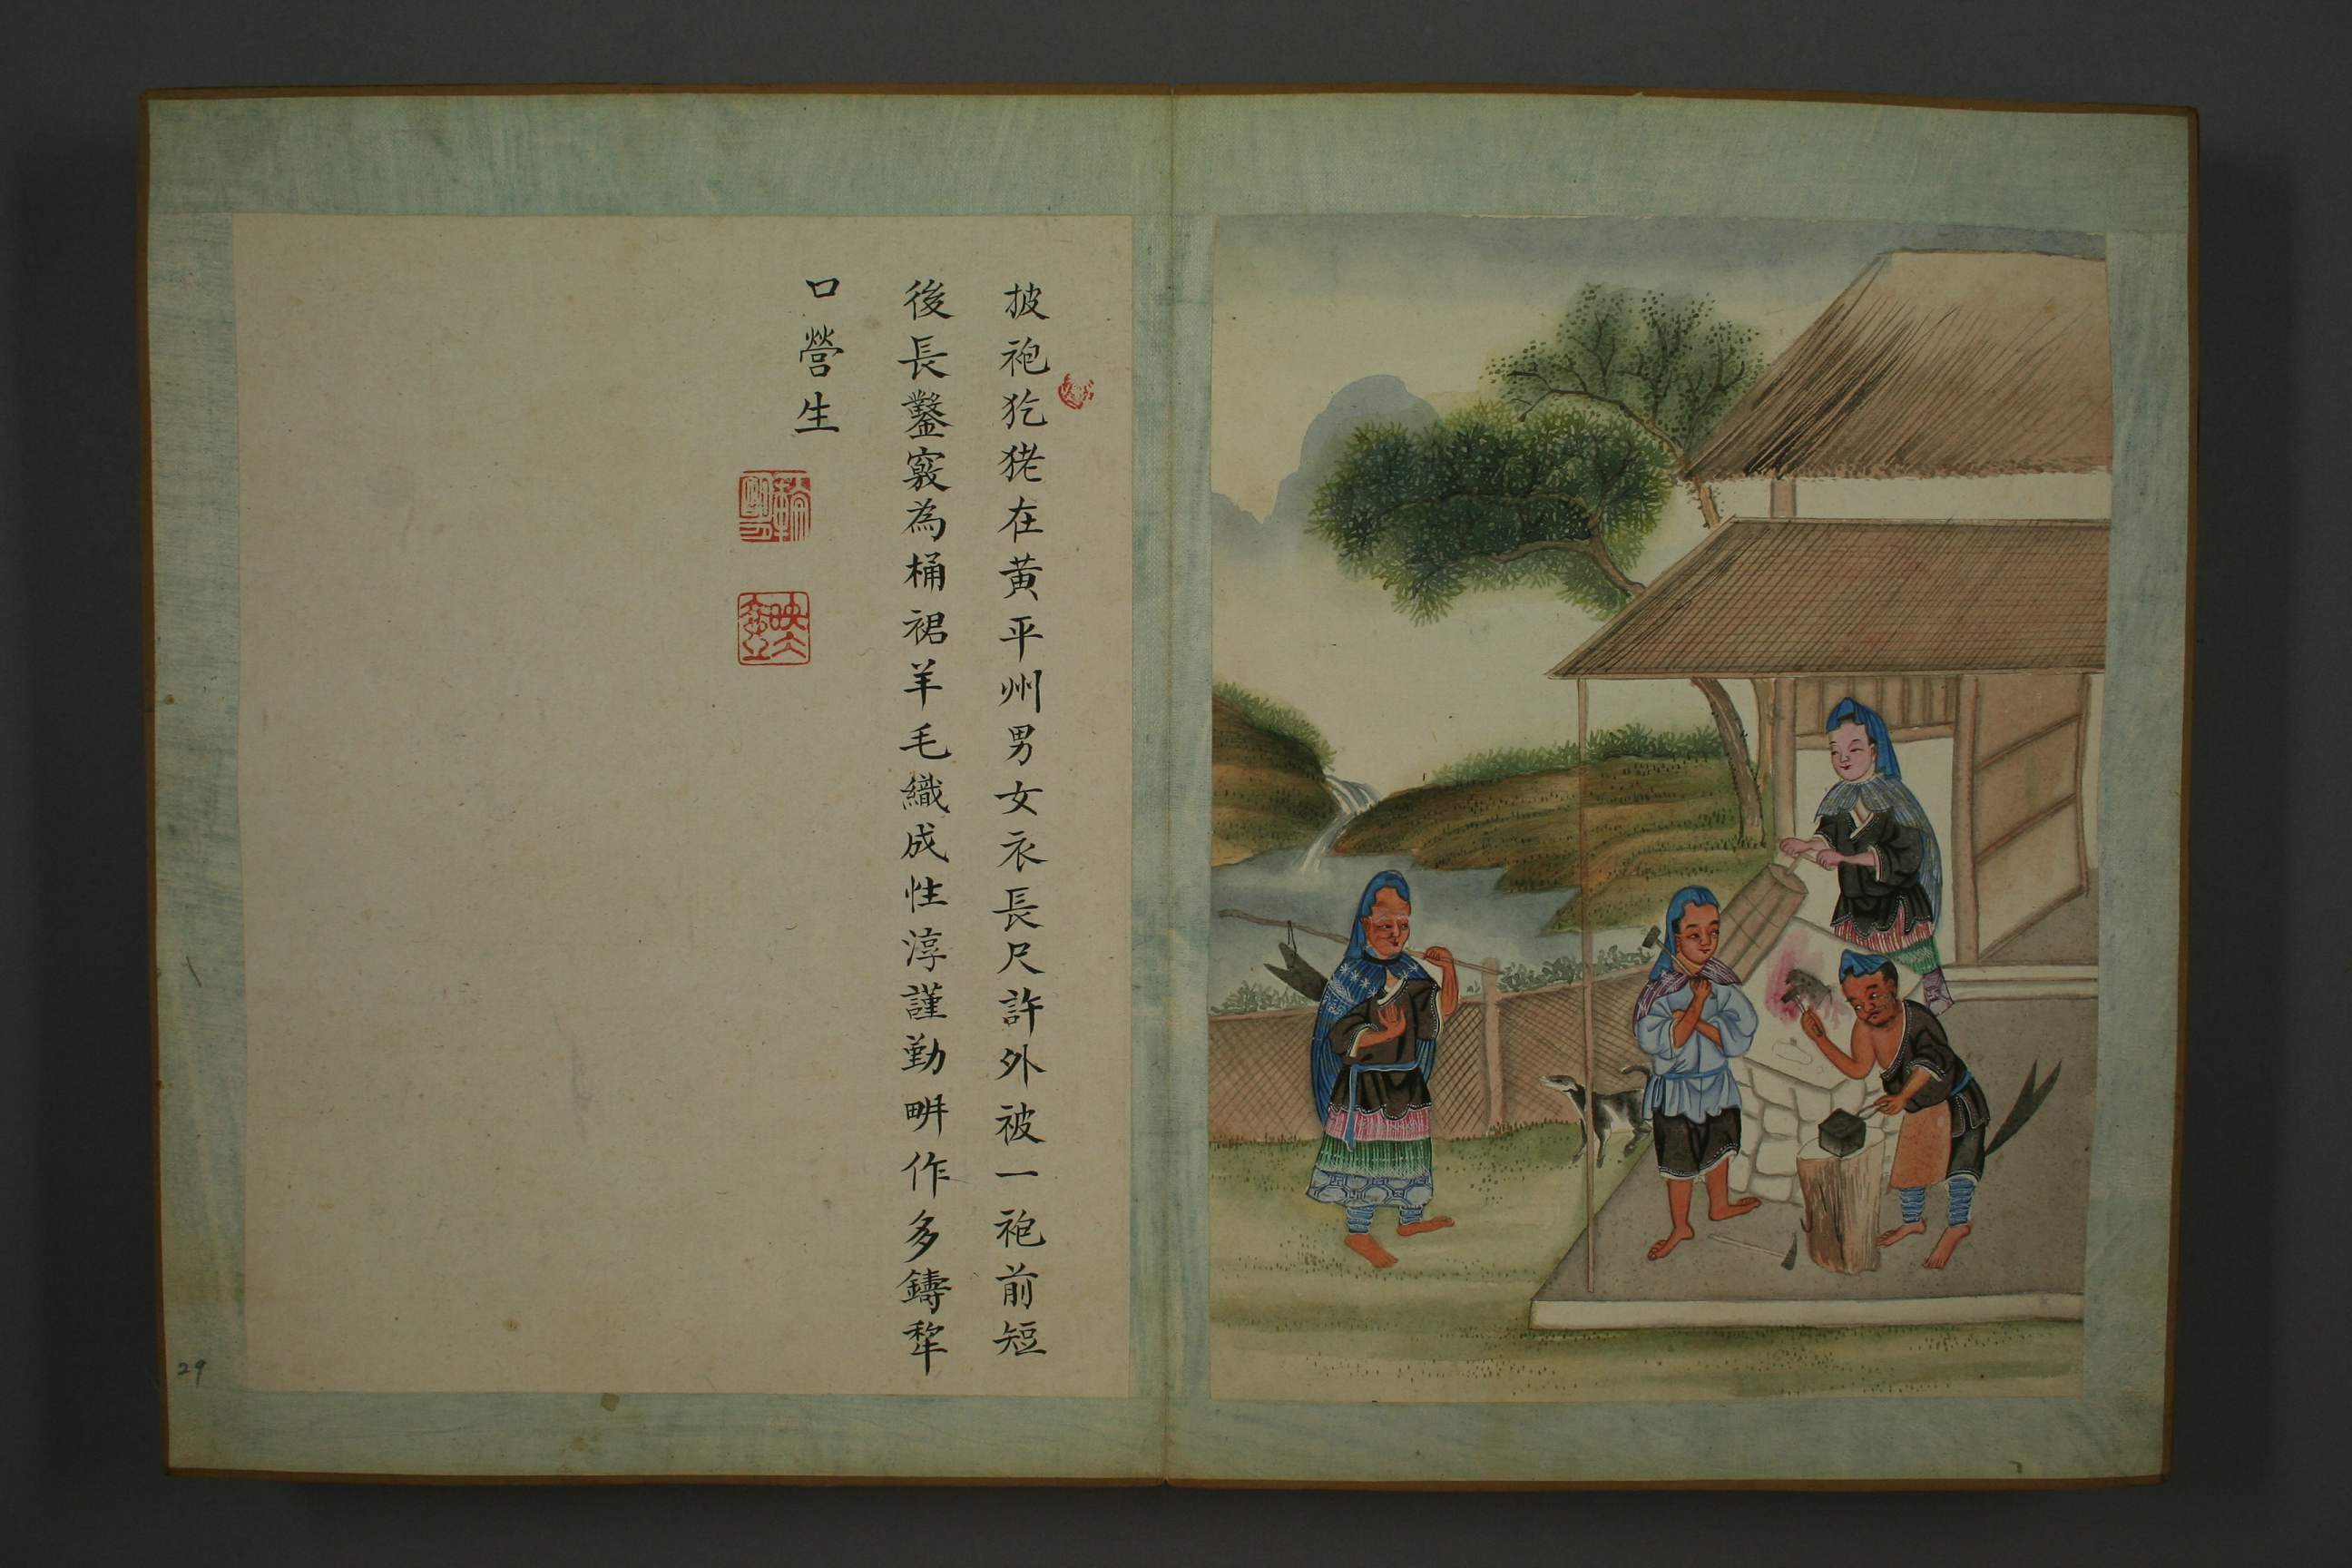 披袍犵狫在黄平州男女衣長尺許外被一袍前短
後長鑿竅為桶裙羊毛織成性淳謹勤畊作多鑄犂
口營生
29